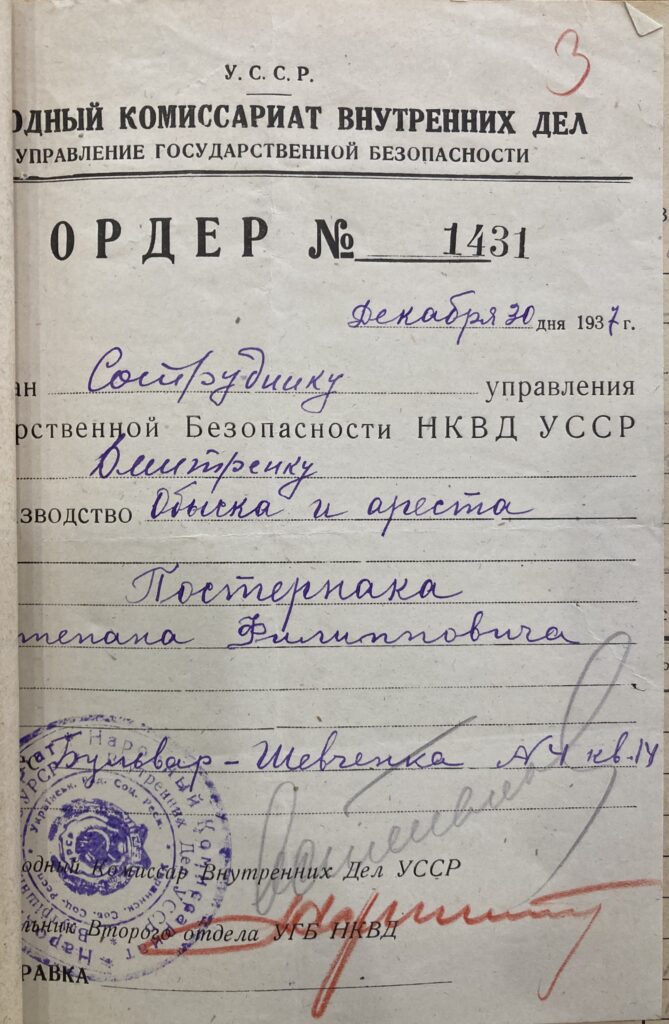 3
У. С. С. Р.
ОДНЫЙ КОМИССАРИАТ ВНУТРЕННИХ ДЕЛ
УПРАВЛЕНИЕ ГОСУДАРСТВЕННОЙ БЕЗОПАСНОСТИ
ОРДЕР № 1431
Декабря 30 дня 1937 г.
ан Сотруднику управления
рственной Безопасности НКВД УССР
Дмитренку
зводство Обыска и ареста
Постернака
тепана Филипповича
Бульвар-Шевченка № 4 кв. 14
одный Комиссар Внутренних Дел УССР
льник Второго отдела УГБ НКВД
РАВКА